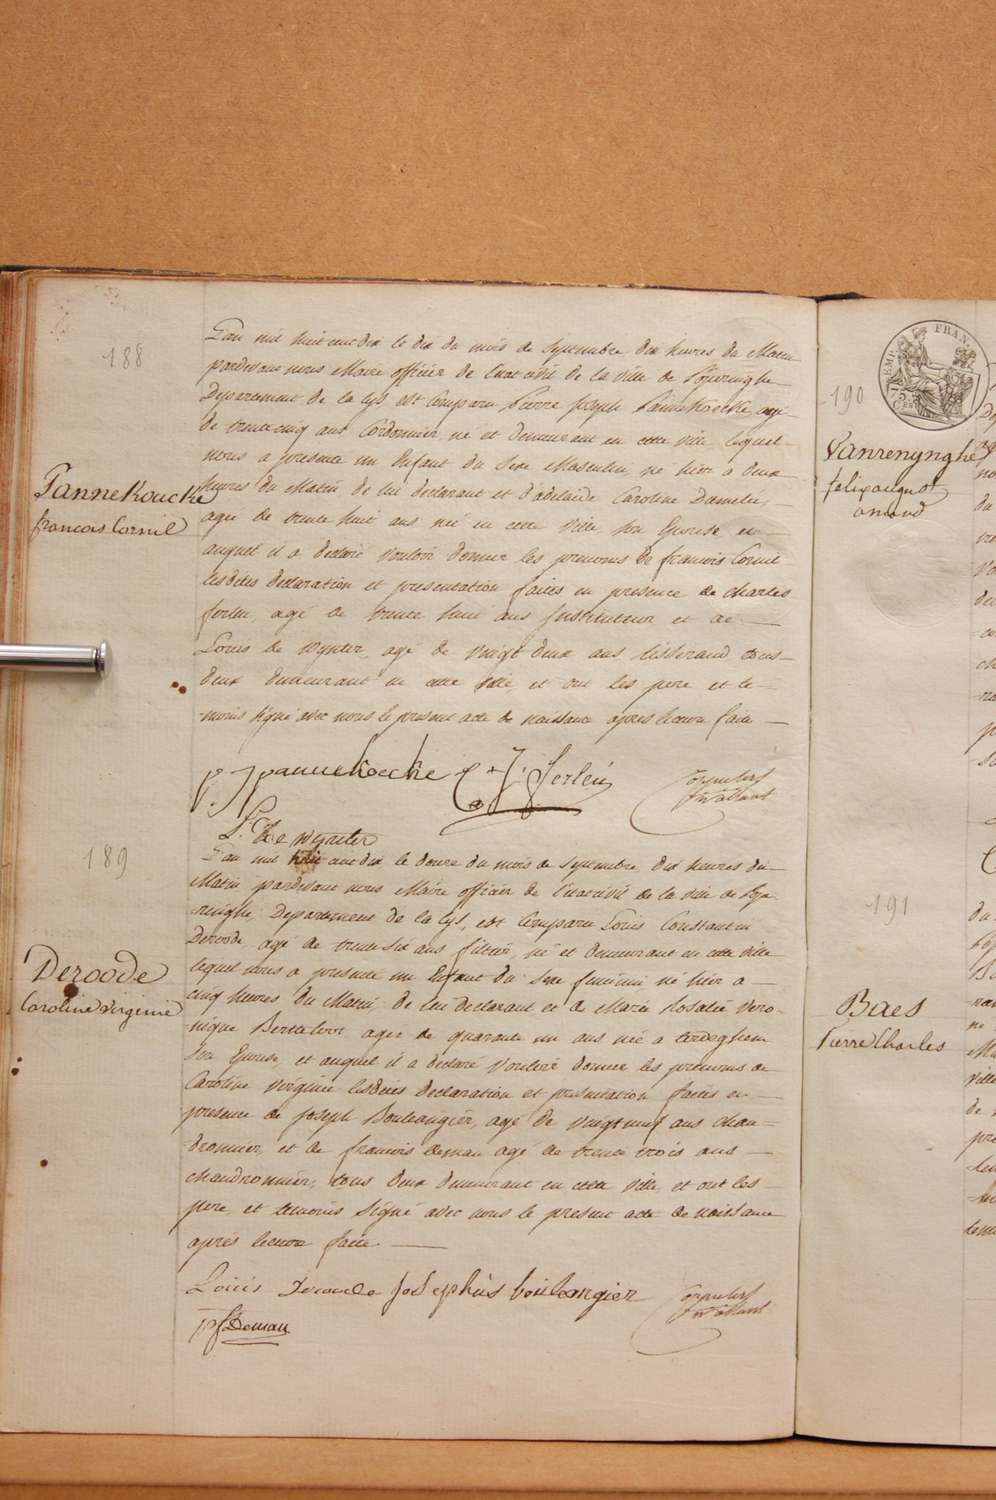 188
Pannekoucke
francois Cornil
L'an mil huit cent dix le dix du mois de Septembre dix heures du Matin
pardevant nous Maire officier de l'etat civil de la ville de Poperinghe
Departement de la Lys est comparu Pierre joseph Pannekoecke, agé
de trente cinq ans Cordonnier, né et demeurant en cette ville lequel
nous a presenté un Enfant du Sexe Masculin né hier a deux
heures du Matin de lui declarant et d'adelaide Caroline
agée de trente huit ans née en cette ville son Epouse et
auquel il a declaré vouloir donner les prenoms de francois Cornil
lesdites declaration et presentation faites en presence de charles
ferlin, agé de trente huit ans Instituteur et de
Louis de wynter, agé de vingt deux ans tisserand tous
deux demeurant en cette ville, et ont les pere et te-
moins signé avec nous le present acte de naissance apres lecture faite
p. J pannekoecke C + J. ferlin
L. De wynter
189
Deroode
Caroline Virginie
L'an mil huit cent dix, le douze du mois de Septembre dix heures du
Matin pardevant nous Maire officier de l'etat civil de la ville de Pope-
ringhe Departement de la Lys, est Comparu Louis Constantin
Deroode, agé de trente six ans filtier, né et demeurant en cette ville
lequel nous a presenté un Enfant du Sexe feminin né hier a
cinq heures du Matin, de lui Declarant et de Marie Rosalie Vero-
nique Berteloot agée de quarante un ans née a terdeghem
son Epouse, et auquel il a déclaré vouloir donner les prenoms de
Caroline Virginie lesdites declaration et presentation faites en
presence de joseph Boulangier, agé de vingt neuf ans chau-
dronnier, et de francois deman agé de trente trois ans
chaudronnier, tous deux demeurant en cette ville, et ont les
pere, et temoins Signé avec nous le present acte de naissance
apres lecture faite
Louis Deroode josephus boulangier
Deman
190
EMP. FRAN.
Vanrenynghe
felix august
amand
191
Baes
Pierre Charles